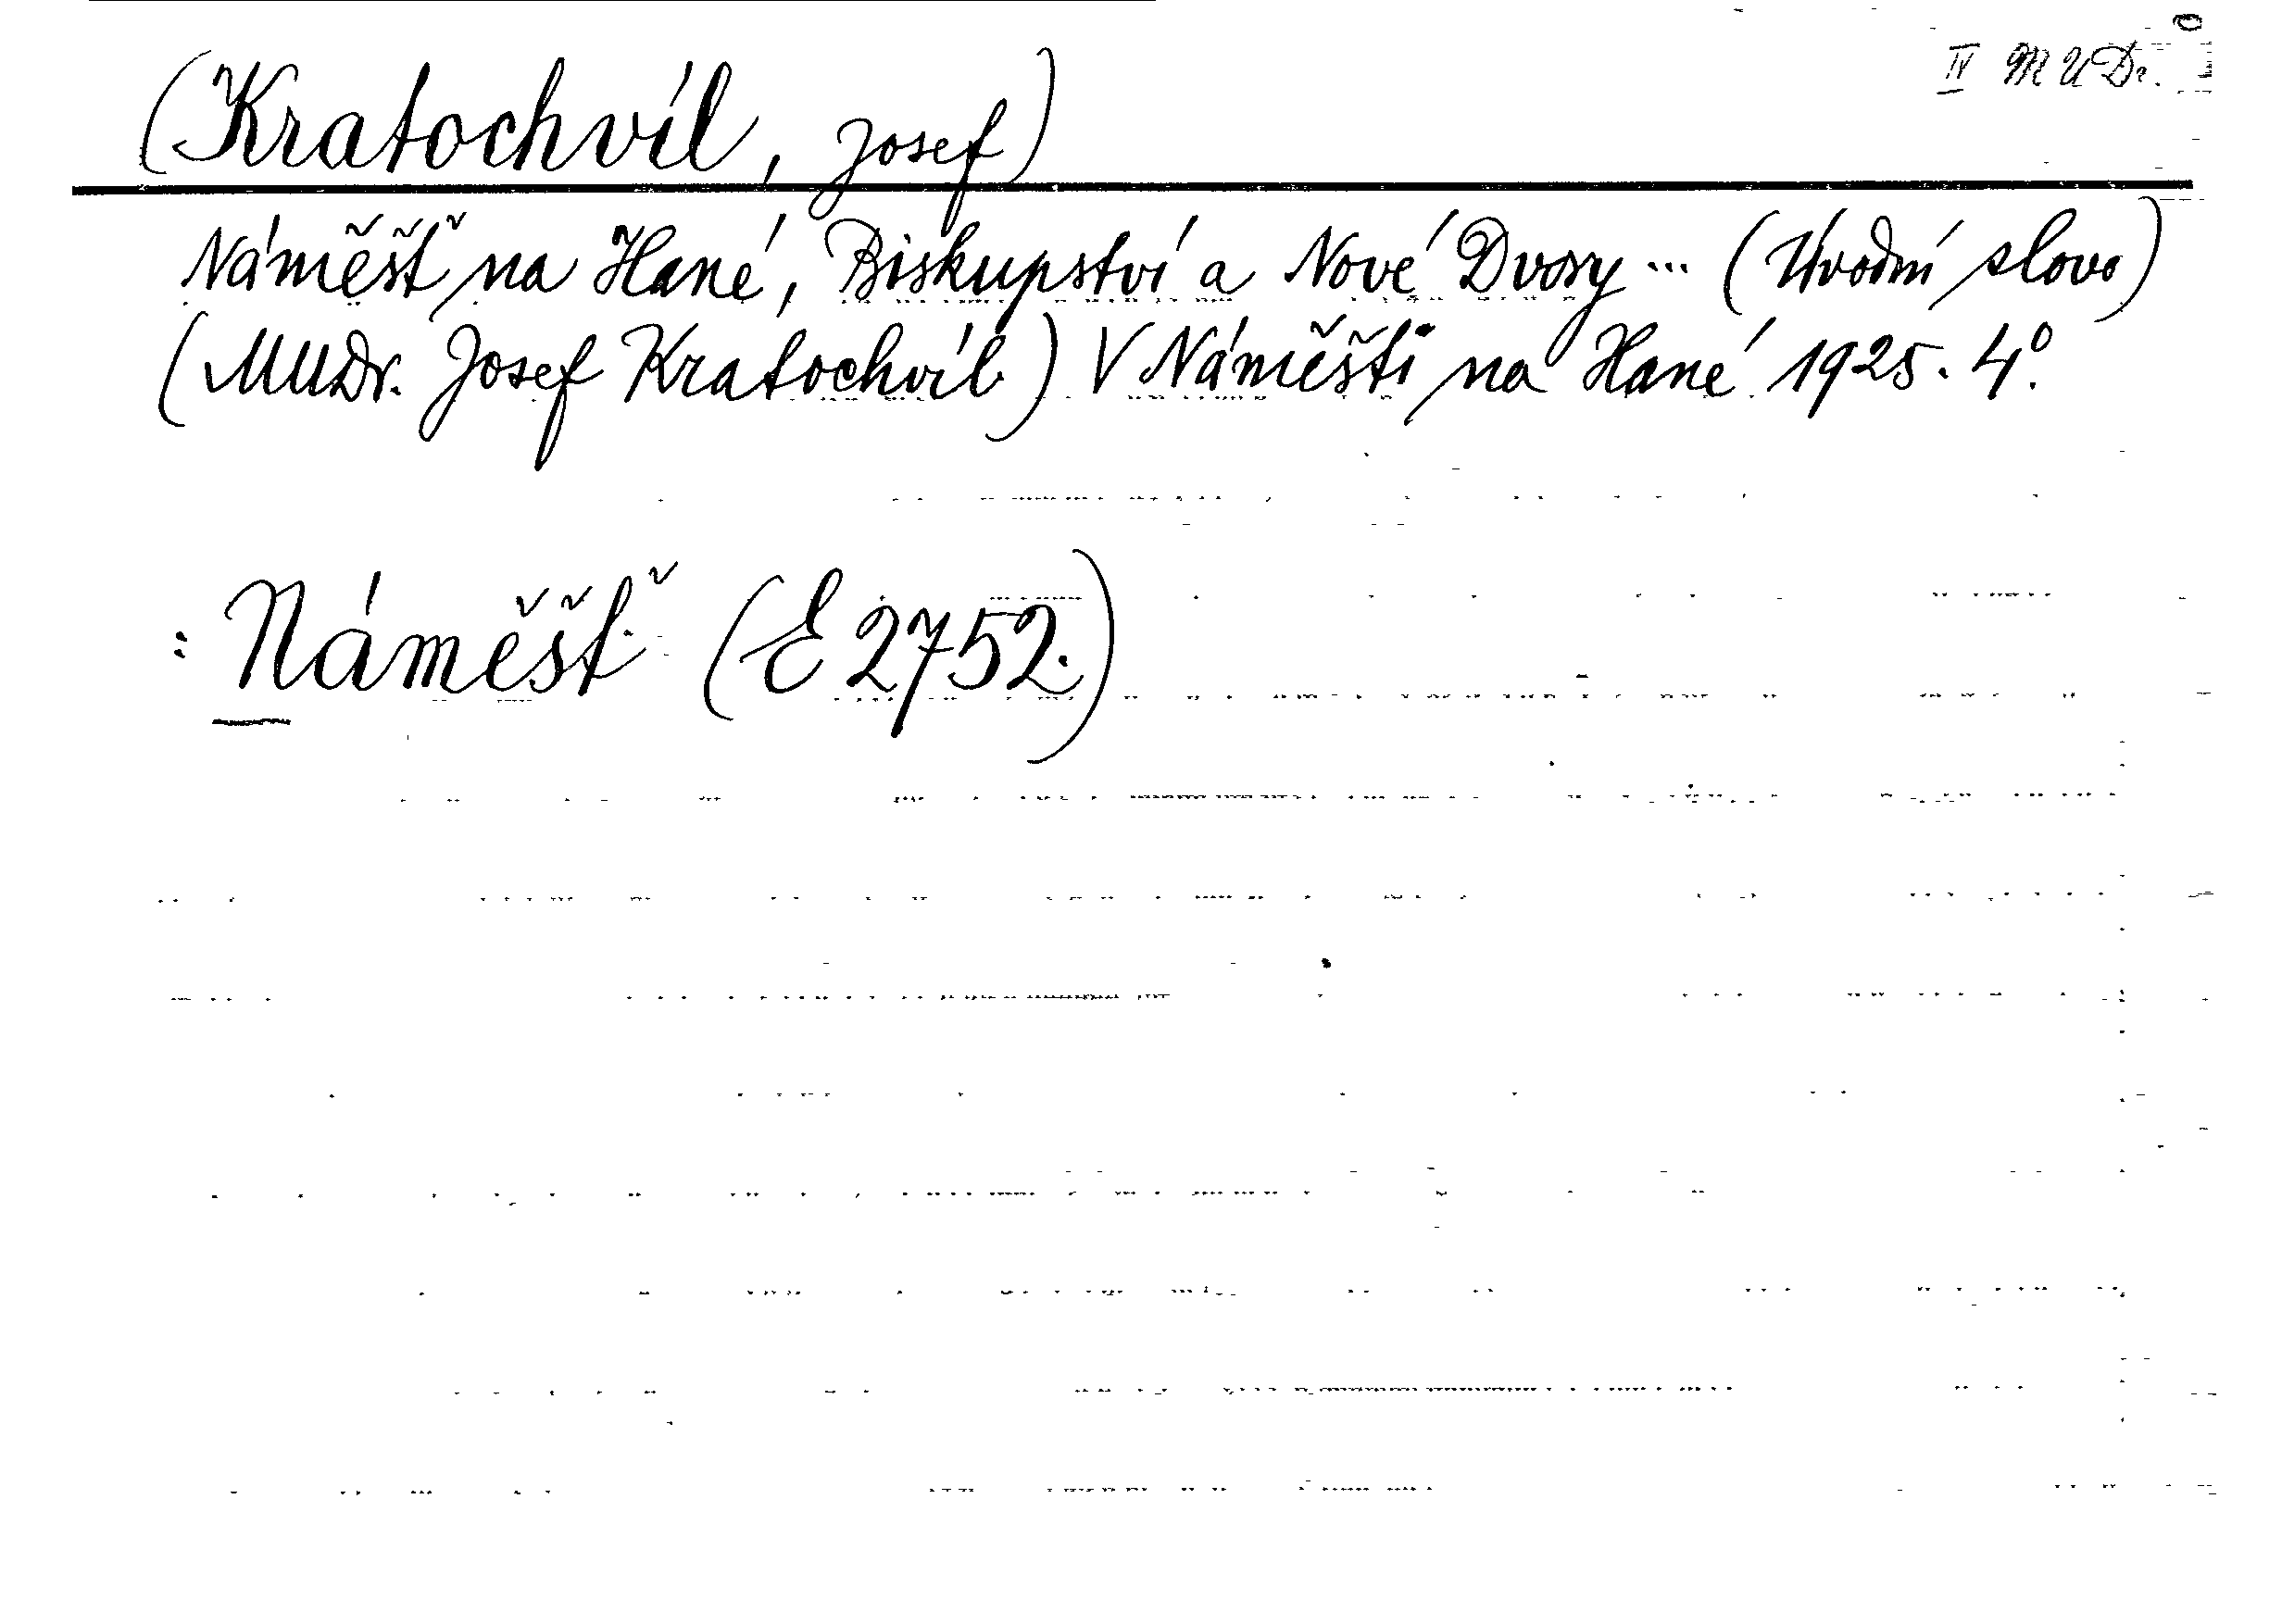 IV MUDr.
(Kratochvíl, Josef)
Náměšť na Hané, Biskupství a Nové Dvory ... (Úvodní slovo)
(MUDr. Josef Kratochvíl) V Náměšti na Hané 1925. 4°.
: Náměšť (E 2752.)